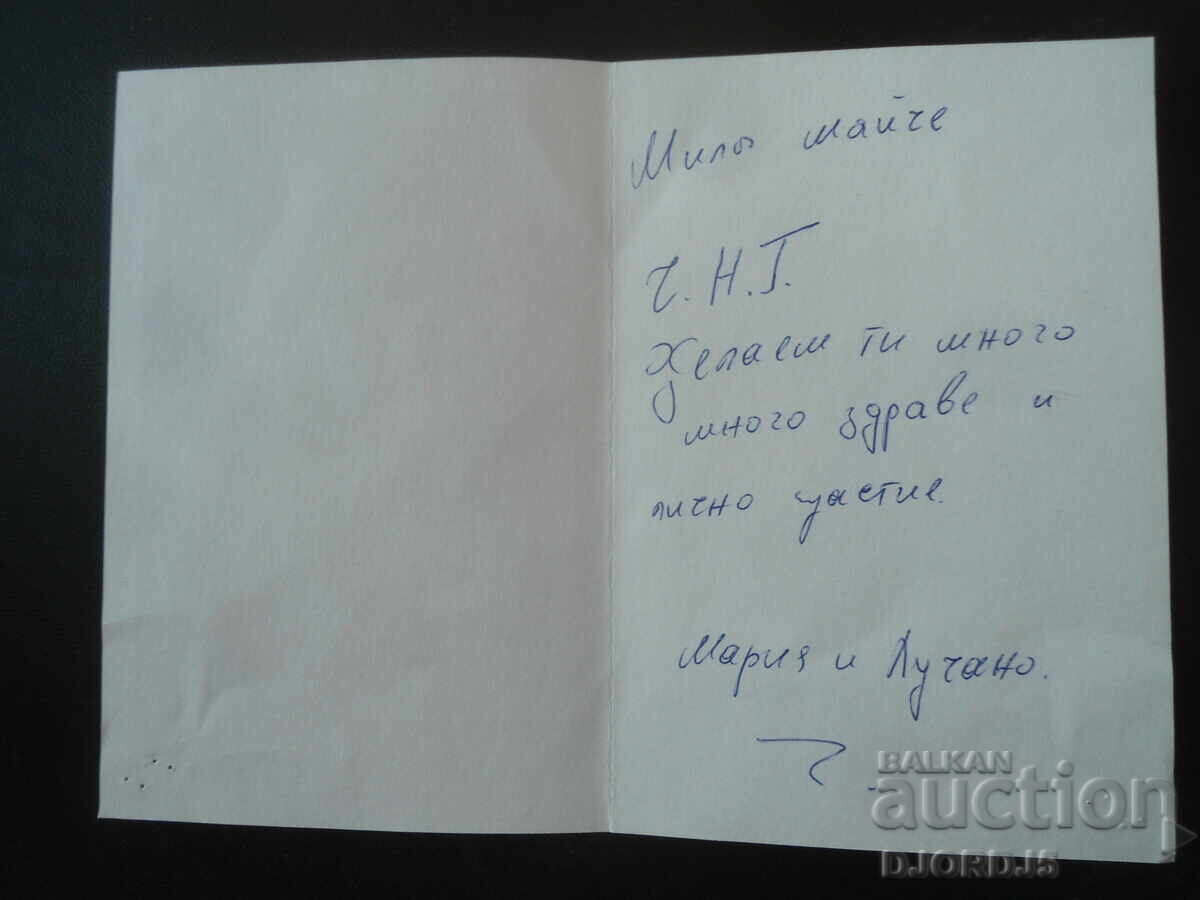 Мило майче
Ч.Н.Г.
Желаем ти много
много здраве и
лично щастие.
Мария и Лучано.
BALKAN
auction
DJORDJ5